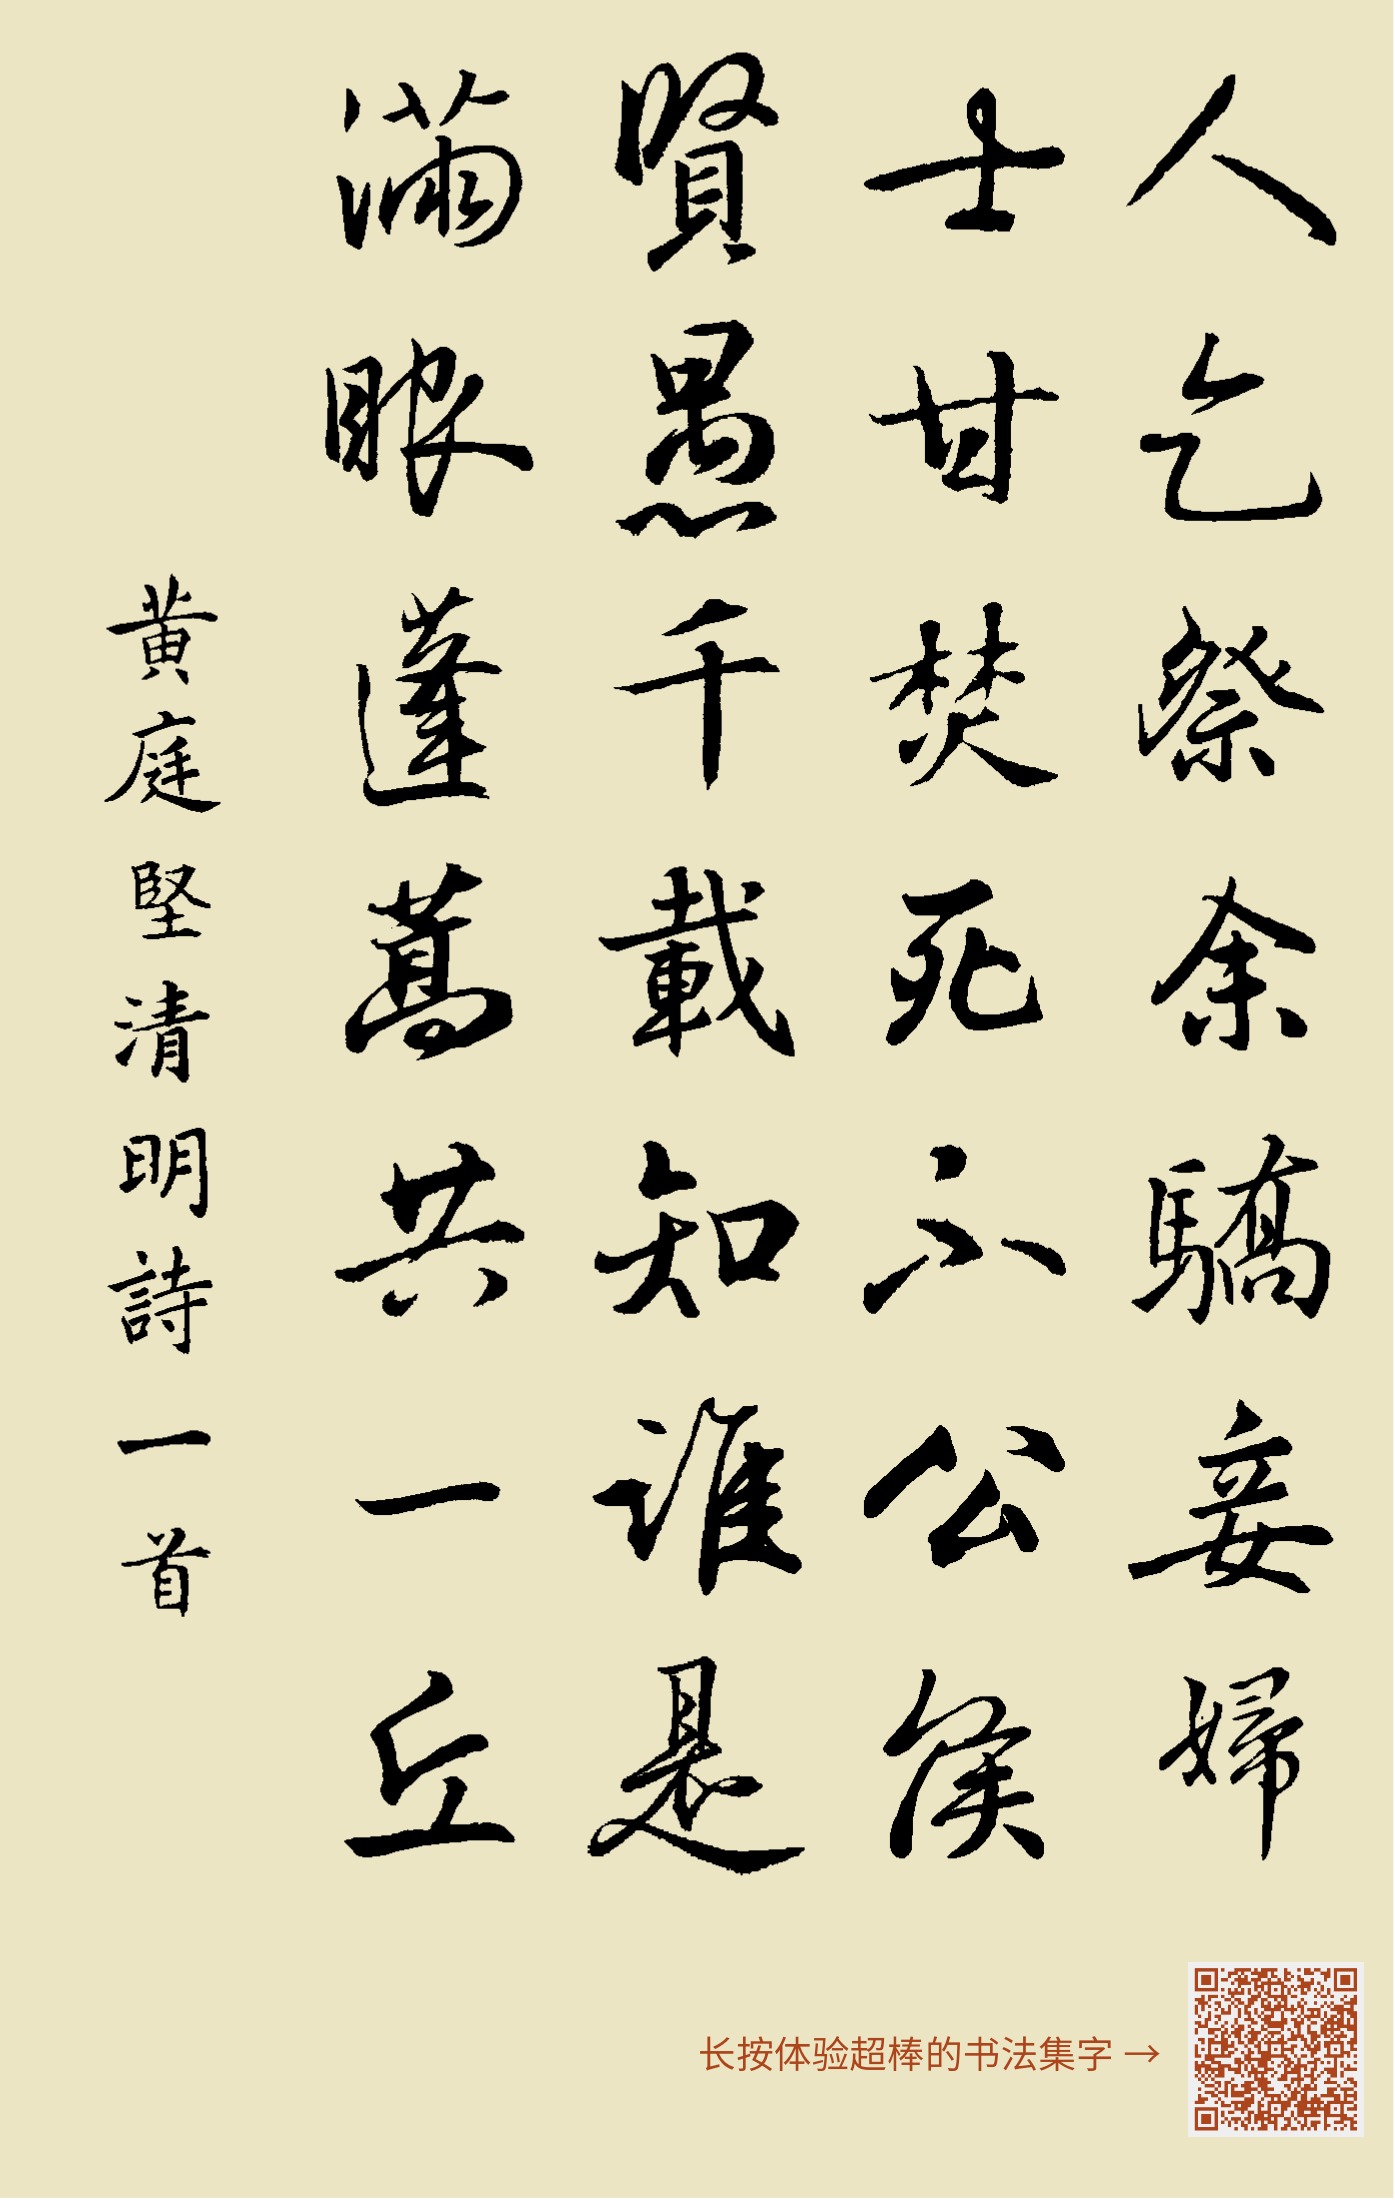 人乞祭余驕妾婦
士甘焚死不公侯
賢愚千載知誰是
滿眼蓬蒿共一丘
黄庭堅清明詩一首
长按体验超棒的书法集字 →